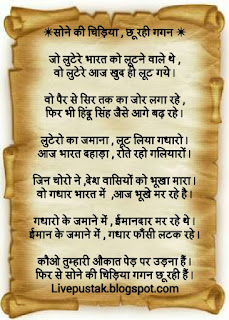 ✴सोने की चिड़िया , छू रही गगन ✴
जो लुटेरे भारत को लूटने वाले थे ,
वो लुटेरे आज खुद ही लूट गये ।
वो पैर से सिर तक का जोर लगा रहे ,
फिर भी हिंदू सिंह जैसे आगे बढ़ रहे ।
लुटेरो का जमाना , लूट लिया गधारो ।
आज भारत दहाड़ा , रोते रहो गलियारों ।
जिन चोरो ने ,देश वासियों को भूखा मारा ।
वो गधार भारत में ,आज भूखे मर रहे है ।
गधारो के जमाने में , ईमानदार मर रहे थे ।
ईमान के जमाने में , गधार फाँसी लटक रहे ।
कौओ तुम्हारी औकात पेड़ पर उड़ना हैं ।
फिर से सोने की चिड़िया गगन छू रही हैं ।
Livepustak.blogspot.com